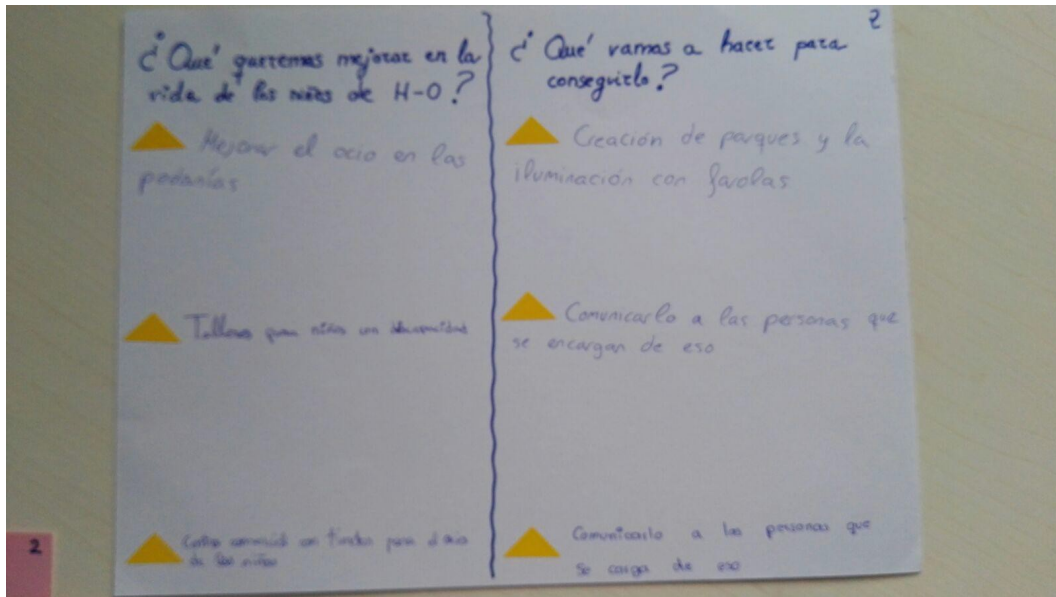 2
¿Qué queremos mejorar en la
vida de los niños de H-O?
Mejorar el ocio en las
pedanías
Talleres para niños con discapacidad
Centro comercial con tiendas para el ocio
de los niños
¿Qué vamos a hacer para
conseguirlo?
Creación de parques y la
iluminación con farolas
Comunicarlo a las personas que
se encargan de eso
Comunicarlo a las personas que
se carga de eso
2